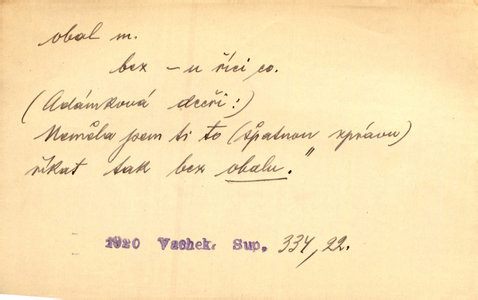 obal m.
bez – u říci co.
(Adámková dceři:)
Neměla jsem ti to (špatnou zprávu)
říkat tak bez obalu."
1920 Vachek. Sup. 334, 22.